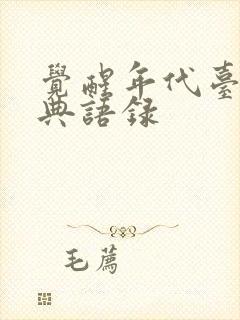 覺醒年代臺
典語錄
毛薦